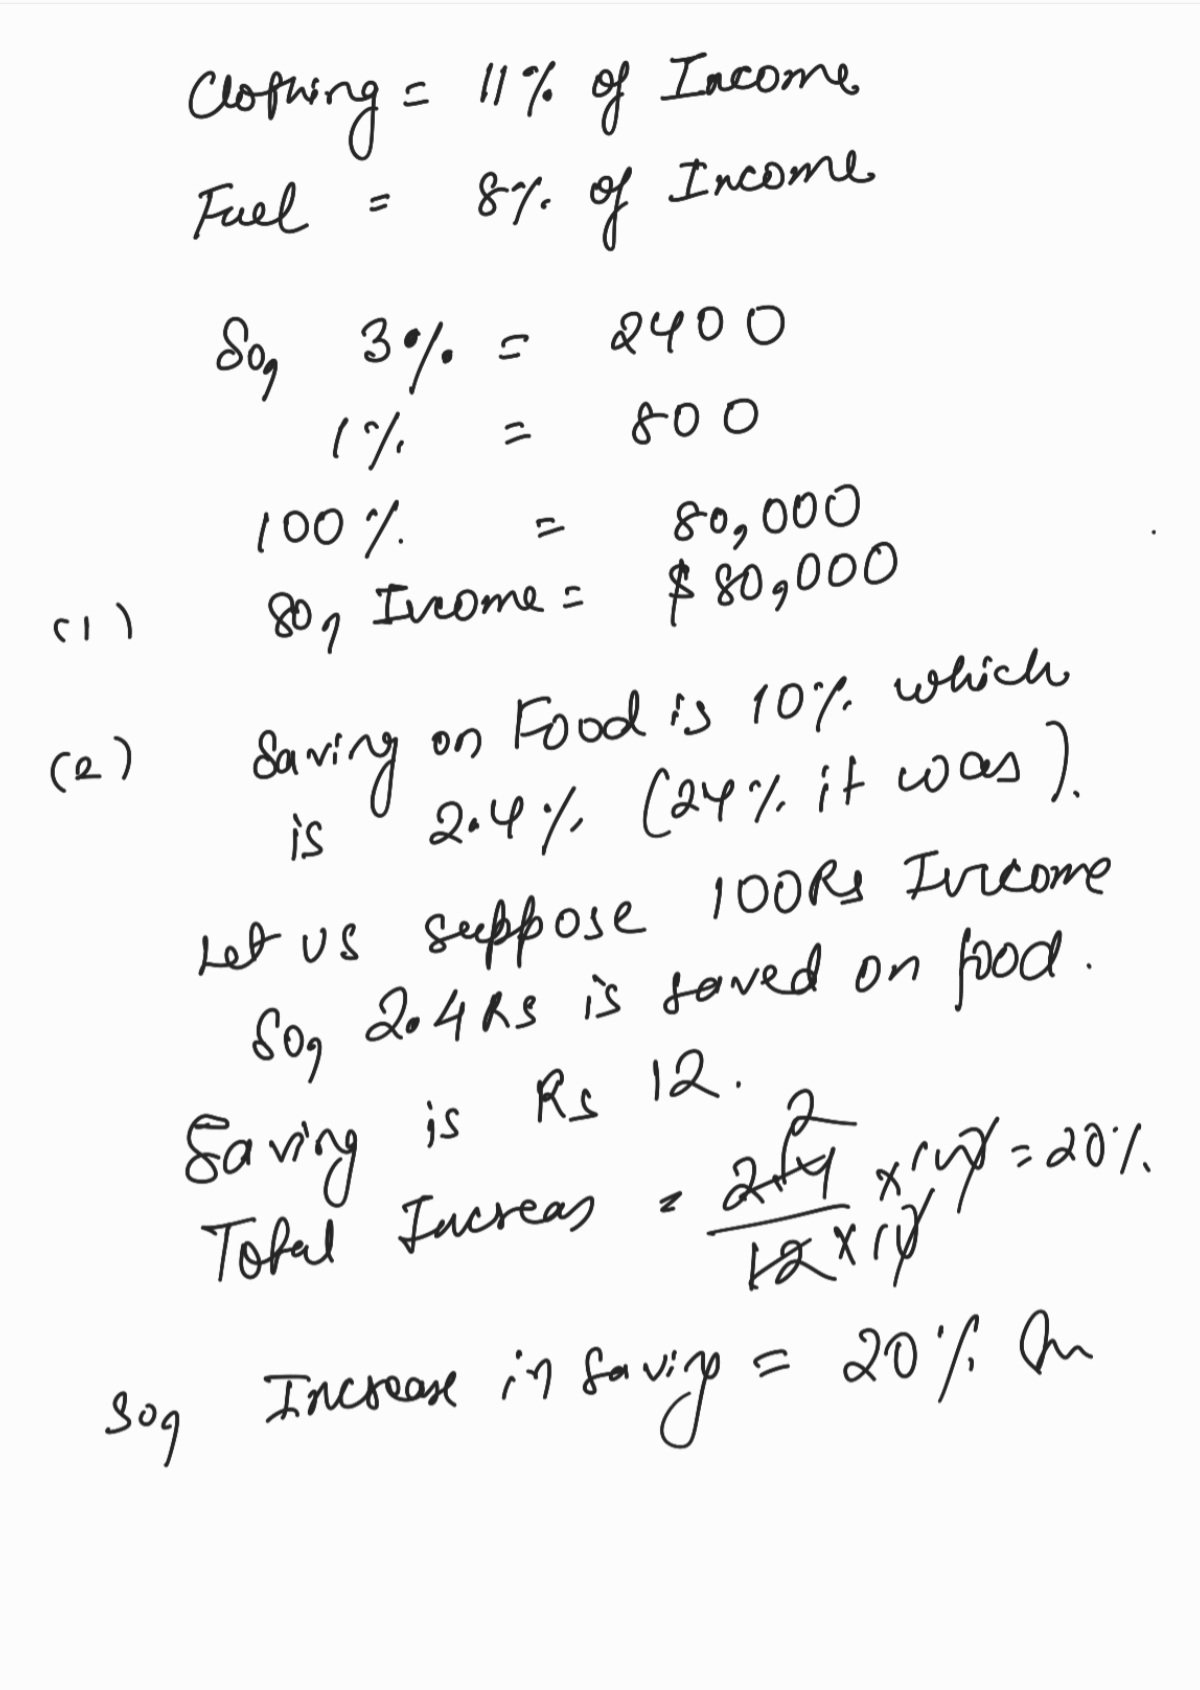 Clothing = 11% of Income
Fuel = 8% of Income
So, 3% = 2400
1% = 800
100% = 80,000
(1) So, Income = $ 80,000
(2) Saving on Food is 10% which
is 2.4% (24% it was).
Let us suppose 100Rs Income
So, 2.4Rs is saved on food.
Saving is Rs 12.
2
Total Increas = 2.4 x 100 = 20%.
12 x 10
So, Increase in Saving = 20%